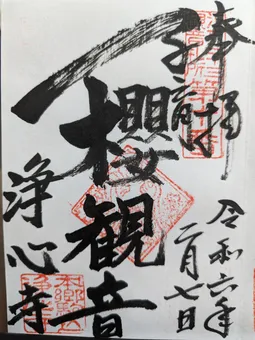 奉拝
子育
櫻観音
令和六年
二月七日
浄心寺